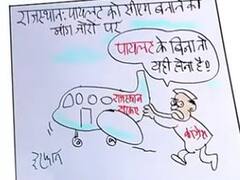 राजस्थान: पायलट को सीएम बनाने की
मांग जोरों पर
पायलट के बिना तो
यही होना है?
राजस्थान
सरकार
कांग्रेस
इरफान